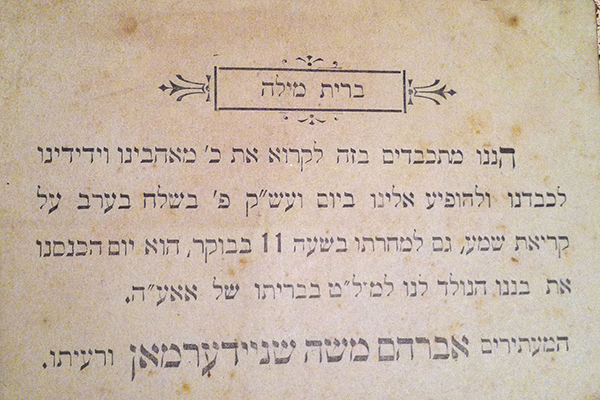 ברית מילה
הננו מתכבדים בזה לקרוא את כ׳ מאהבינו וידידינו
לכבדנו ולהופיע אלינו ביום ועש״ק פ׳ בשלח בערב על
קריאת שמע, גם למחרתו בשעה 11 בבוקר, הוא יום הכנסנו
את בננו הנולד לנו למ״ל״ט בבריתו של אאע״ה.
המעתירים אברהם משה שניידערמאן ורעיתו.